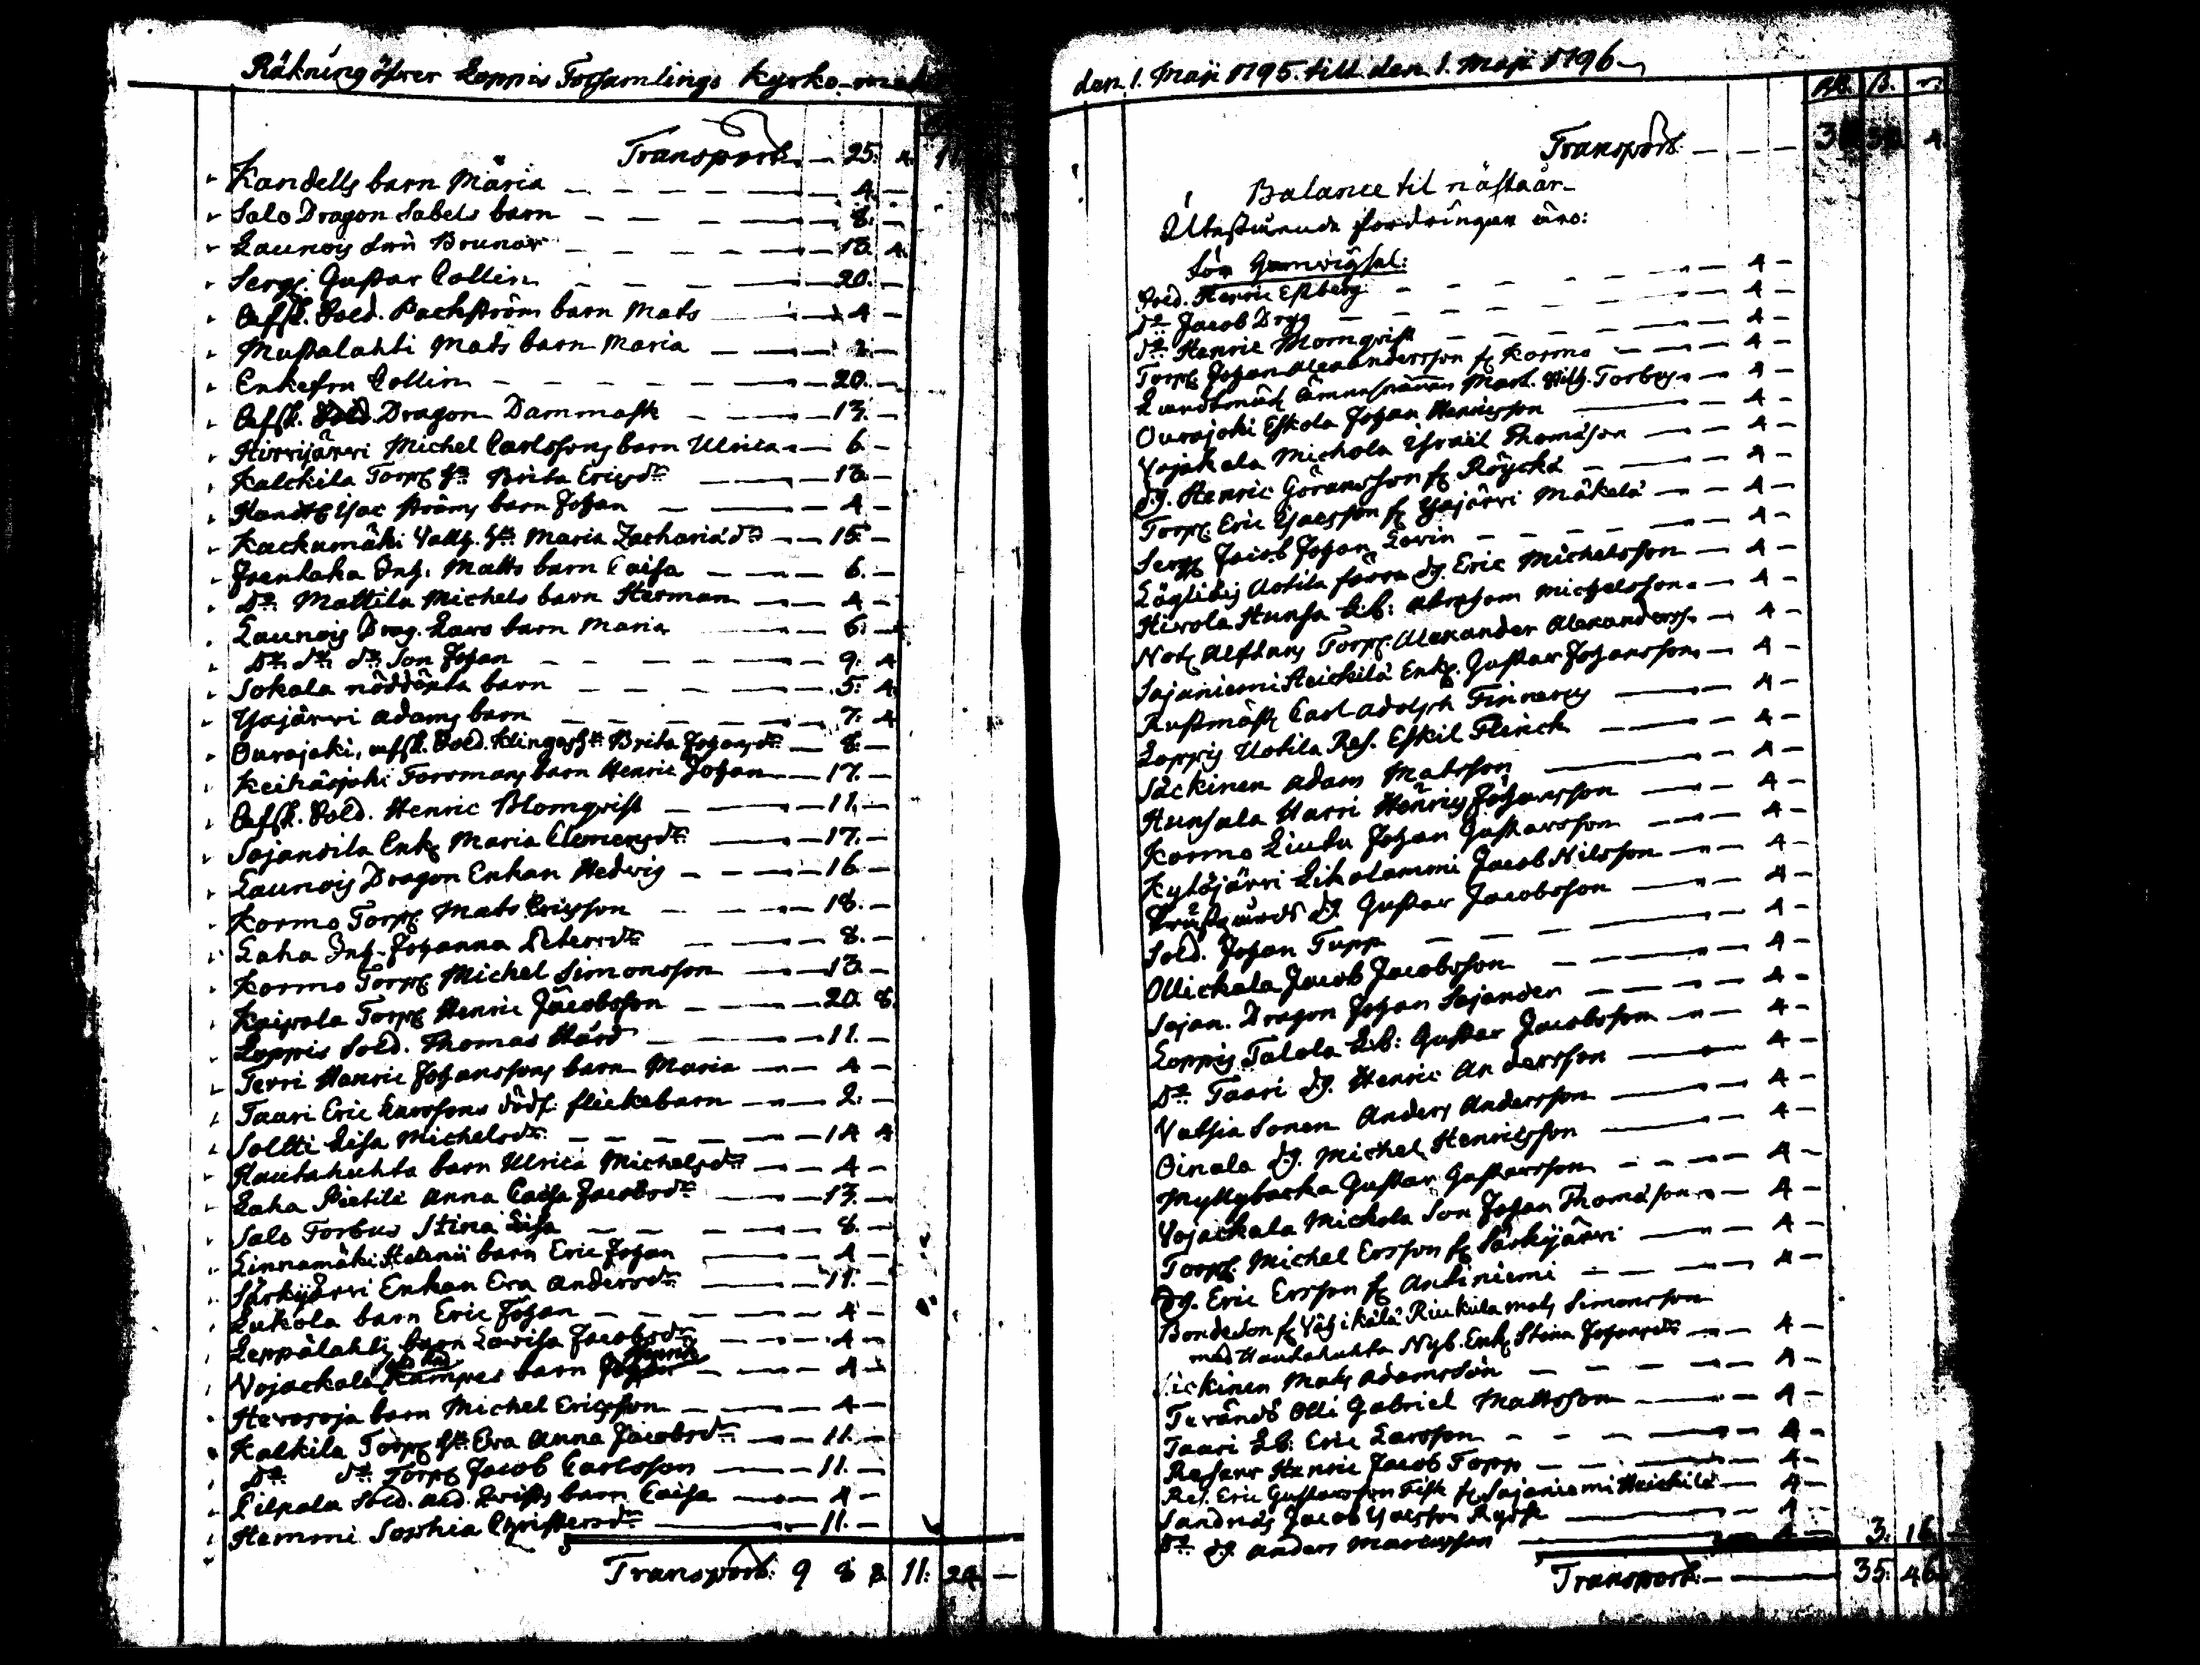 Räkning öfwer Loppis Församlings Kyrko-
Transport. — 25. 4.
Kandells barn Maria — 4 —
Salo Dragon Sabels barn — 8. —
Launois Brunor — 13. 4.
Serg. Gustav Collin — 20. —
Afsk. Sold. Backström barn Mats — 4 —
Mustalahti Mats barn Maria — 2. —
Enkefru Collin — 20. —
Afsk. Dragon Dammask — 13. —
Hirvijärvi Michel Carlssons barn Ulrica — 6 —
Kalckila Torp. Hu Brita Ericsdr — 13. —
Isac Ströms barn Johan — 4 —
Kackumäki Hu Maria Zachariædr — 15. —
Inh. Matts barn Caisa — 6. —
Do Mattila Michels barn Herman — 4 —
Launois Drag. barn Maria — 6. —
Do do do Son Johan — 9. 4
Sokala nöddöpta barn — 5. 4.
Yajärvi Adams barn — 7. 4
Ourajoki, afsk. Sold. Klingas Hu Brita Johansdr — 8. —
Keihäsjoki Forsmans barn Henric Johan — 17. —
Afsk. Sold. Henric Blomqvist — 11. —
Sajanvila Enk. Maria Clemensdr — 17. —
Launois Dragon Enkan Hedvig — 16 —
Kormo Torp. Mats Ericsson — 18. —
Laha Inh. Johanna Petersdr — 8. —
Kormo Torp. Michel Simonsson — 13. —
Kaipola Torp. Henric Jacobsson — 20. 8.
Loppis Sold. Thomas Hård — 11. —
Terri Henric Johanssons barn Maria — 4 —
Taari Eric Larssons dödf. flickebarn — 2. —
Soltti Lisa Michelsdr — 14 4
Hautahuhta barn Ulrica Michelsdr — 4 —
Laha Pietilä Anna Caisa Jacobsdr — 13. —
Salo Torbus Stina Lisa — 8. —
Linnamäki barn Eric Johan — 4 —
Särkijärvi Enkan Eva Andersdr — 11. —
Lukola barn Eric Johan — 4 —
Leppälahti barn Lovisa Jacobsdr — 4 —
Vojackala Kämpes barn — 4 —
Hevosoja barn Michel Ericsson — 4 —
Kalkila Torp. Hu Eva Anna Jacobsdr — 11. —
Do do Torp. Jacob Carlsson — 11. —
Pilpala Sold. barn Caisa — 4 —
Hemmi Sophia Christersdr — 11. —
Transport: 9 8 8 11: 24 —
den 1. Maji 1795. till den 1. Maji 1796
Rd. ß. r.
Transport — 4.
Balance til nästa år
Utestående fordringar äro:
för
Sold. Henric Estberg — 4 —
do Jacob Drygg — 4 —
do Henric Blomqvist — 4 —
Torp. Johan Alexandersson fr. Kormo — 4 —
Landtmät. Torbus — 4 —
Ourajoki Eskola Johan Henricsson — 4 —
Vojakala Michola Israël Thomason — 4 —
dg. Henric Göransson fr. Röyckä — 4 —
Torp. Eric Isacsson fr. Yajärvi Mäkelä — 4 —
Serg. Jacob Johan Lovin — 4 —
Läyliäis Aotila förra dg. Eric Michelsson — 4 —
Hirvola Hunsa Lb: Abraham Michelsson — 4 —
Not. Alftans Torp. Alexander Alexanderss. — 4 —
Sajaniemi Heickilä Enk. Gustav Johansson — 4 —
Rustmäst. Carl Adolph Finneus — 4 —
Loppis Uotila Res. Eskil Flinck — 4 —
Säckinen Adam Matsson — 4 —
Hunsala Harri Henric Johansson — 4 —
Kormo Liuta Johan Gustavsson — 4 —
Kytöjärvi Likolammi Jacob Nilsson — 4 —
dg. Gustav Jacobsson — 4 —
Sold. Johan Tupp — 4 —
Ollickala Jacob Jacobsson — 4 —
Sajan. Dragon Johan Sajander — 4 —
Loppis Talola Lb: Gustav Jacobsson — 4 —
Do Taari dg. Henric Andersson — 4 —
Vatsia Sonen Anders Andersson — 4 —
Oinala dg. Michel Henricsson — 4 —
Myllybacka Gustav Gustavsson — 4 —
Vojackala Michola Son Johan Thomason — 4 —
Torp. Michel Ersson fr. Särkijärvi — 4 —
dg. Eric Ersson fr. Antiniemi — 4 —
Bondeson fr. Vähikälä Riukula Mats Simonsson
med Hautahuhta Nyb. Enk. Stina Johansdr — 4 —
Säckinen Mats Adamsson — 4 —
Terändö Olli Gabriel Mattsson — 4 —
Taari Lb: Eric Larsson — 4 —
Reserv Henric Jacob Topp — 4 —
Res. Eric Gustavsson Fisk fr. Sajaniemi Heickilä — 4 —
Sandnäs Jacob Isacsson — 4 —
Do dg. Anders Marcusson — 4 — 3. 16
Transport. — 35. 46